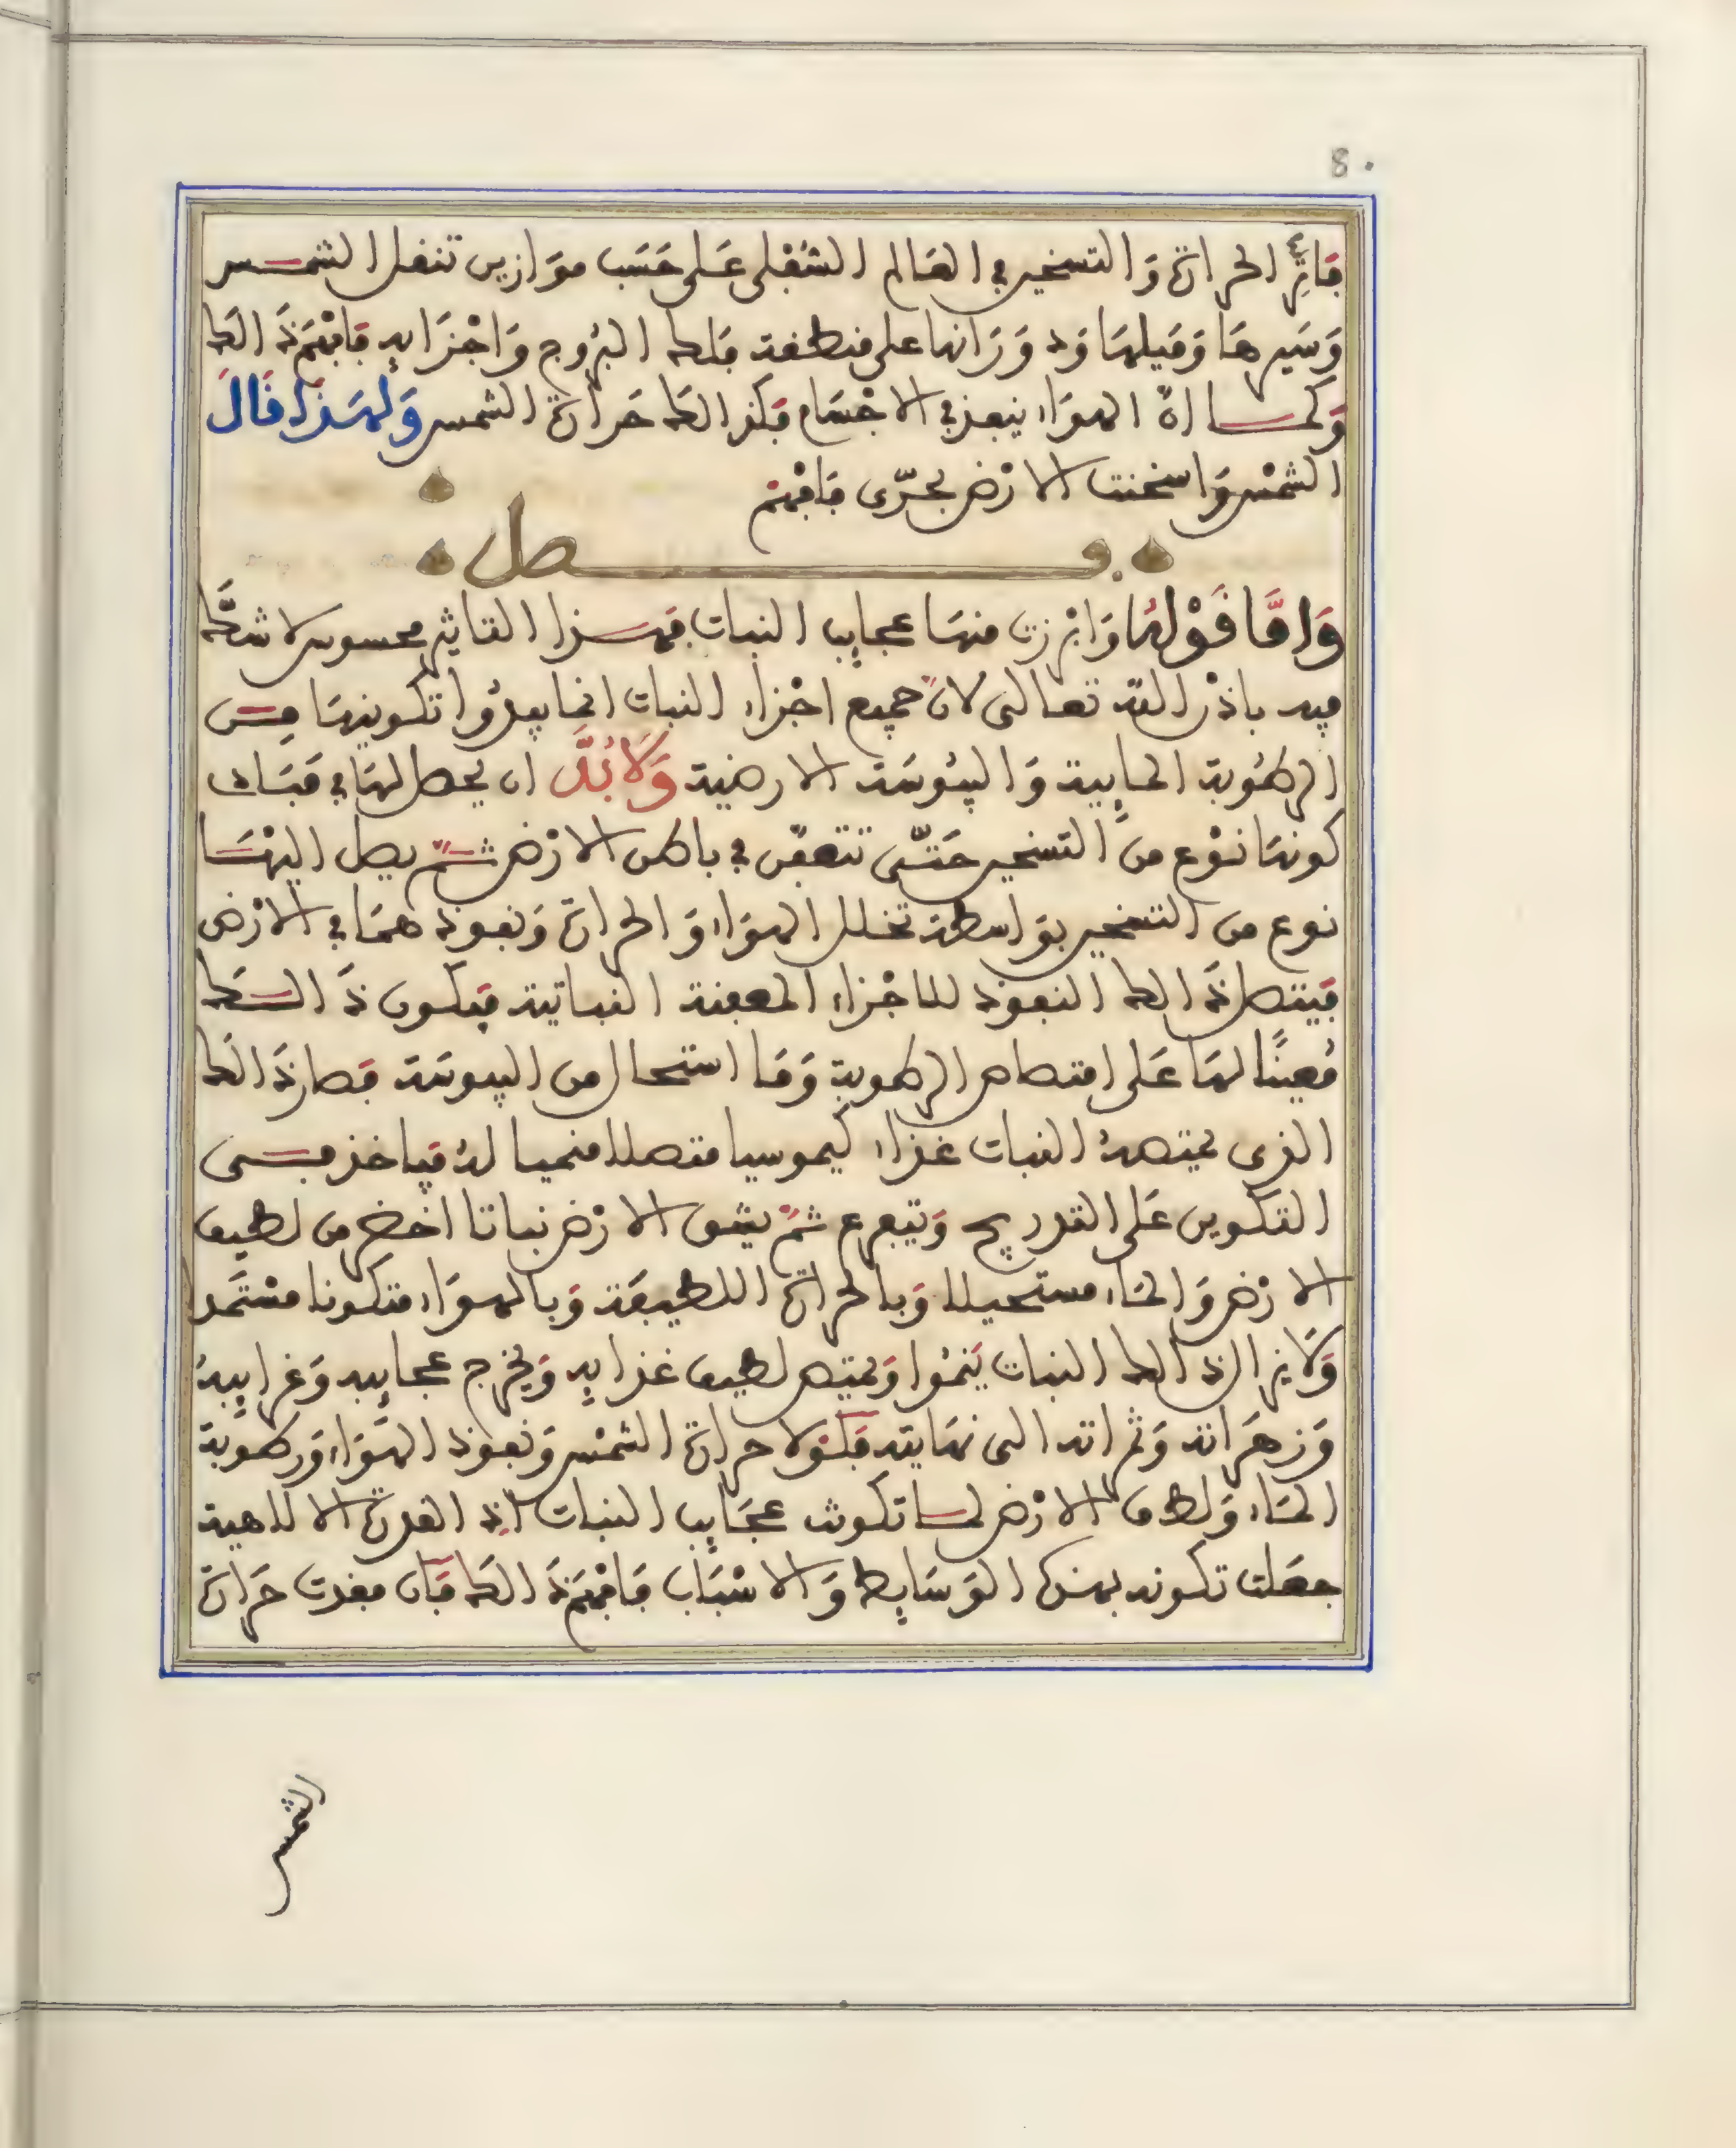 80
فاثر الحرارة والتسخير في العالم السفلى على حسب موازين تنقل الشمس
وسيرها وميلها ودورانها على منطقة فلك البروج واجزايه فافهم ذالك
وكما ان الهواء ينفذ في الاجسام فكذالك حرارة الشمس ولهذا قال
الشمس واسخنت الارض بحرى فافهم
فصل
واما قولها وابرزت منها عجايب النبات فهذا التاثير محسوس لا شك
فيه باذن الله تعالى لان جميع اجزاء النبات انما يبدوا تكوينها من
الرطوبة المايية واليبوسة الارضية ولا بد ان يحصل لها في مبادى
كونها نوع من التسخير حتى تتعفن في باطن الارض ثم يصل اليها
نوع من التسخير بواسطة تخلل الهواء والحرارة ونفوذ هما في الارض
فيتصل ذالك النفوذ للاجزاء المعفنة النباتية فيكون ذالك
معينا لها على امتصاص الرطوبة وما استحال من اليبوسة فصار ذالك
الذى يمتصه النبات غذاء كيموسيا متصلا منميا له فياخذ في
التكوين على التدريج ويتفرع ثم يشق الارض نباتا اخضر من لطيف
الارض والماء مستحيلا وبالحرارة اللطيفة وبالهواء متكونا مستمد
ولا يزال ذالك النبات ينموا ويمتص لطيف غذايه ويخرج عجايبه وغرايبه
وزهراته وثمراته الى نهايته فلولا حرارة الشمس ونفوذ الهواء ورطوبة
الماء ولطف الارض لما تكونت عجايب النبات اذ القدرة الالاهية
جعلت تكونه بهذه الوسايط والاسباب فافهم ذالك فان فقدت حرارة
الشمس